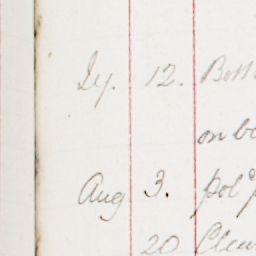 Jy. 12. Bott
on b
Aug 3. pol
20 Clea